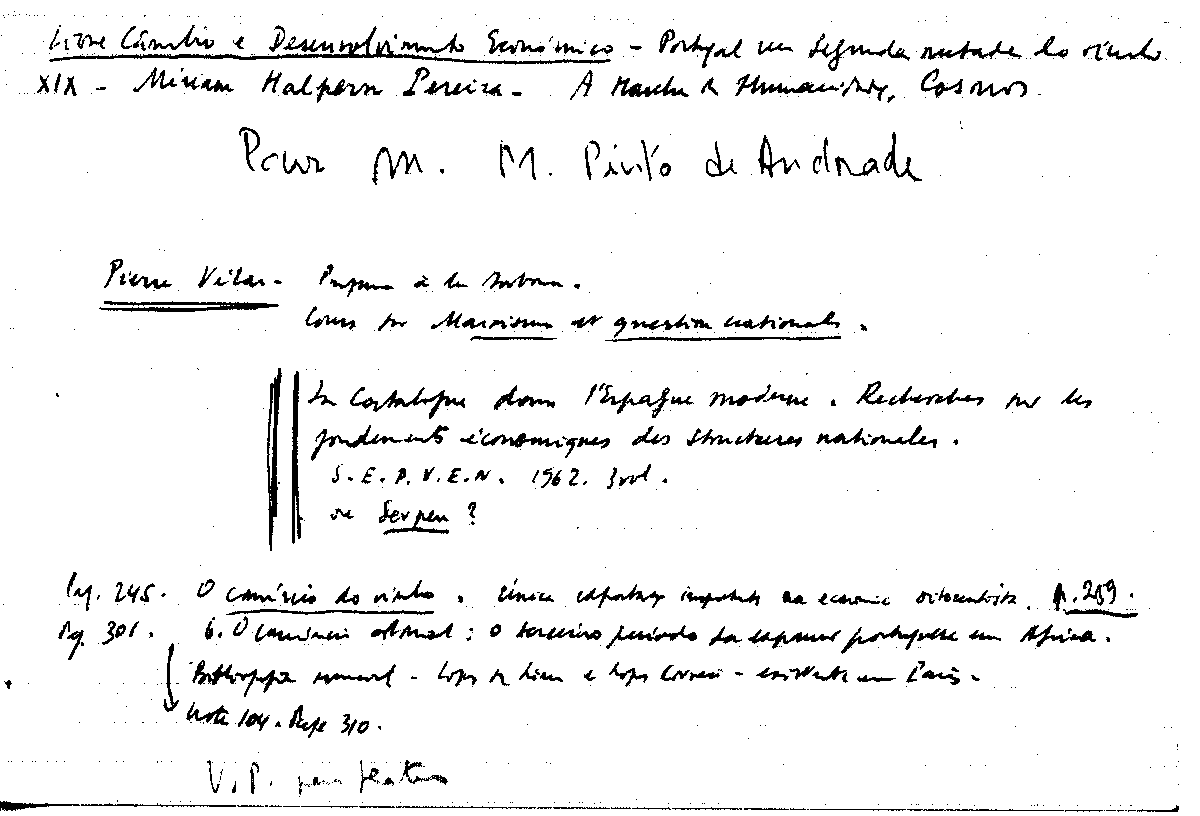 Livre Câmbio e Desenvolvimento Económico - Portugal na segunda metade do século
XIX - Miriam Halpern Pereira - A Marcha da Humanidade, Cosmos.
Pour M. M. Pinto de Andrade
Pierre Vilar - Professeur à la Sorbonne.
Cours sur Marxisme et question nationale.
La Catalogne dans l'Espagne moderne. Recherches sur les
fondements économiques des structures nationales.
S.E.P.V.E.N. 1962. 3 vol.
ou Serpen ?
Pag. 245. O comércio do vinho. única exportação importante na economia oitocentista. p. 259.
Pag. 301. 6. O comércio colonial: o terceiro período da expansão portuguesa em África.
Bibliografia - Lopes de Lima e Lopes Correia - existente em Paris -
Nota 104. Page 310.
V.P.